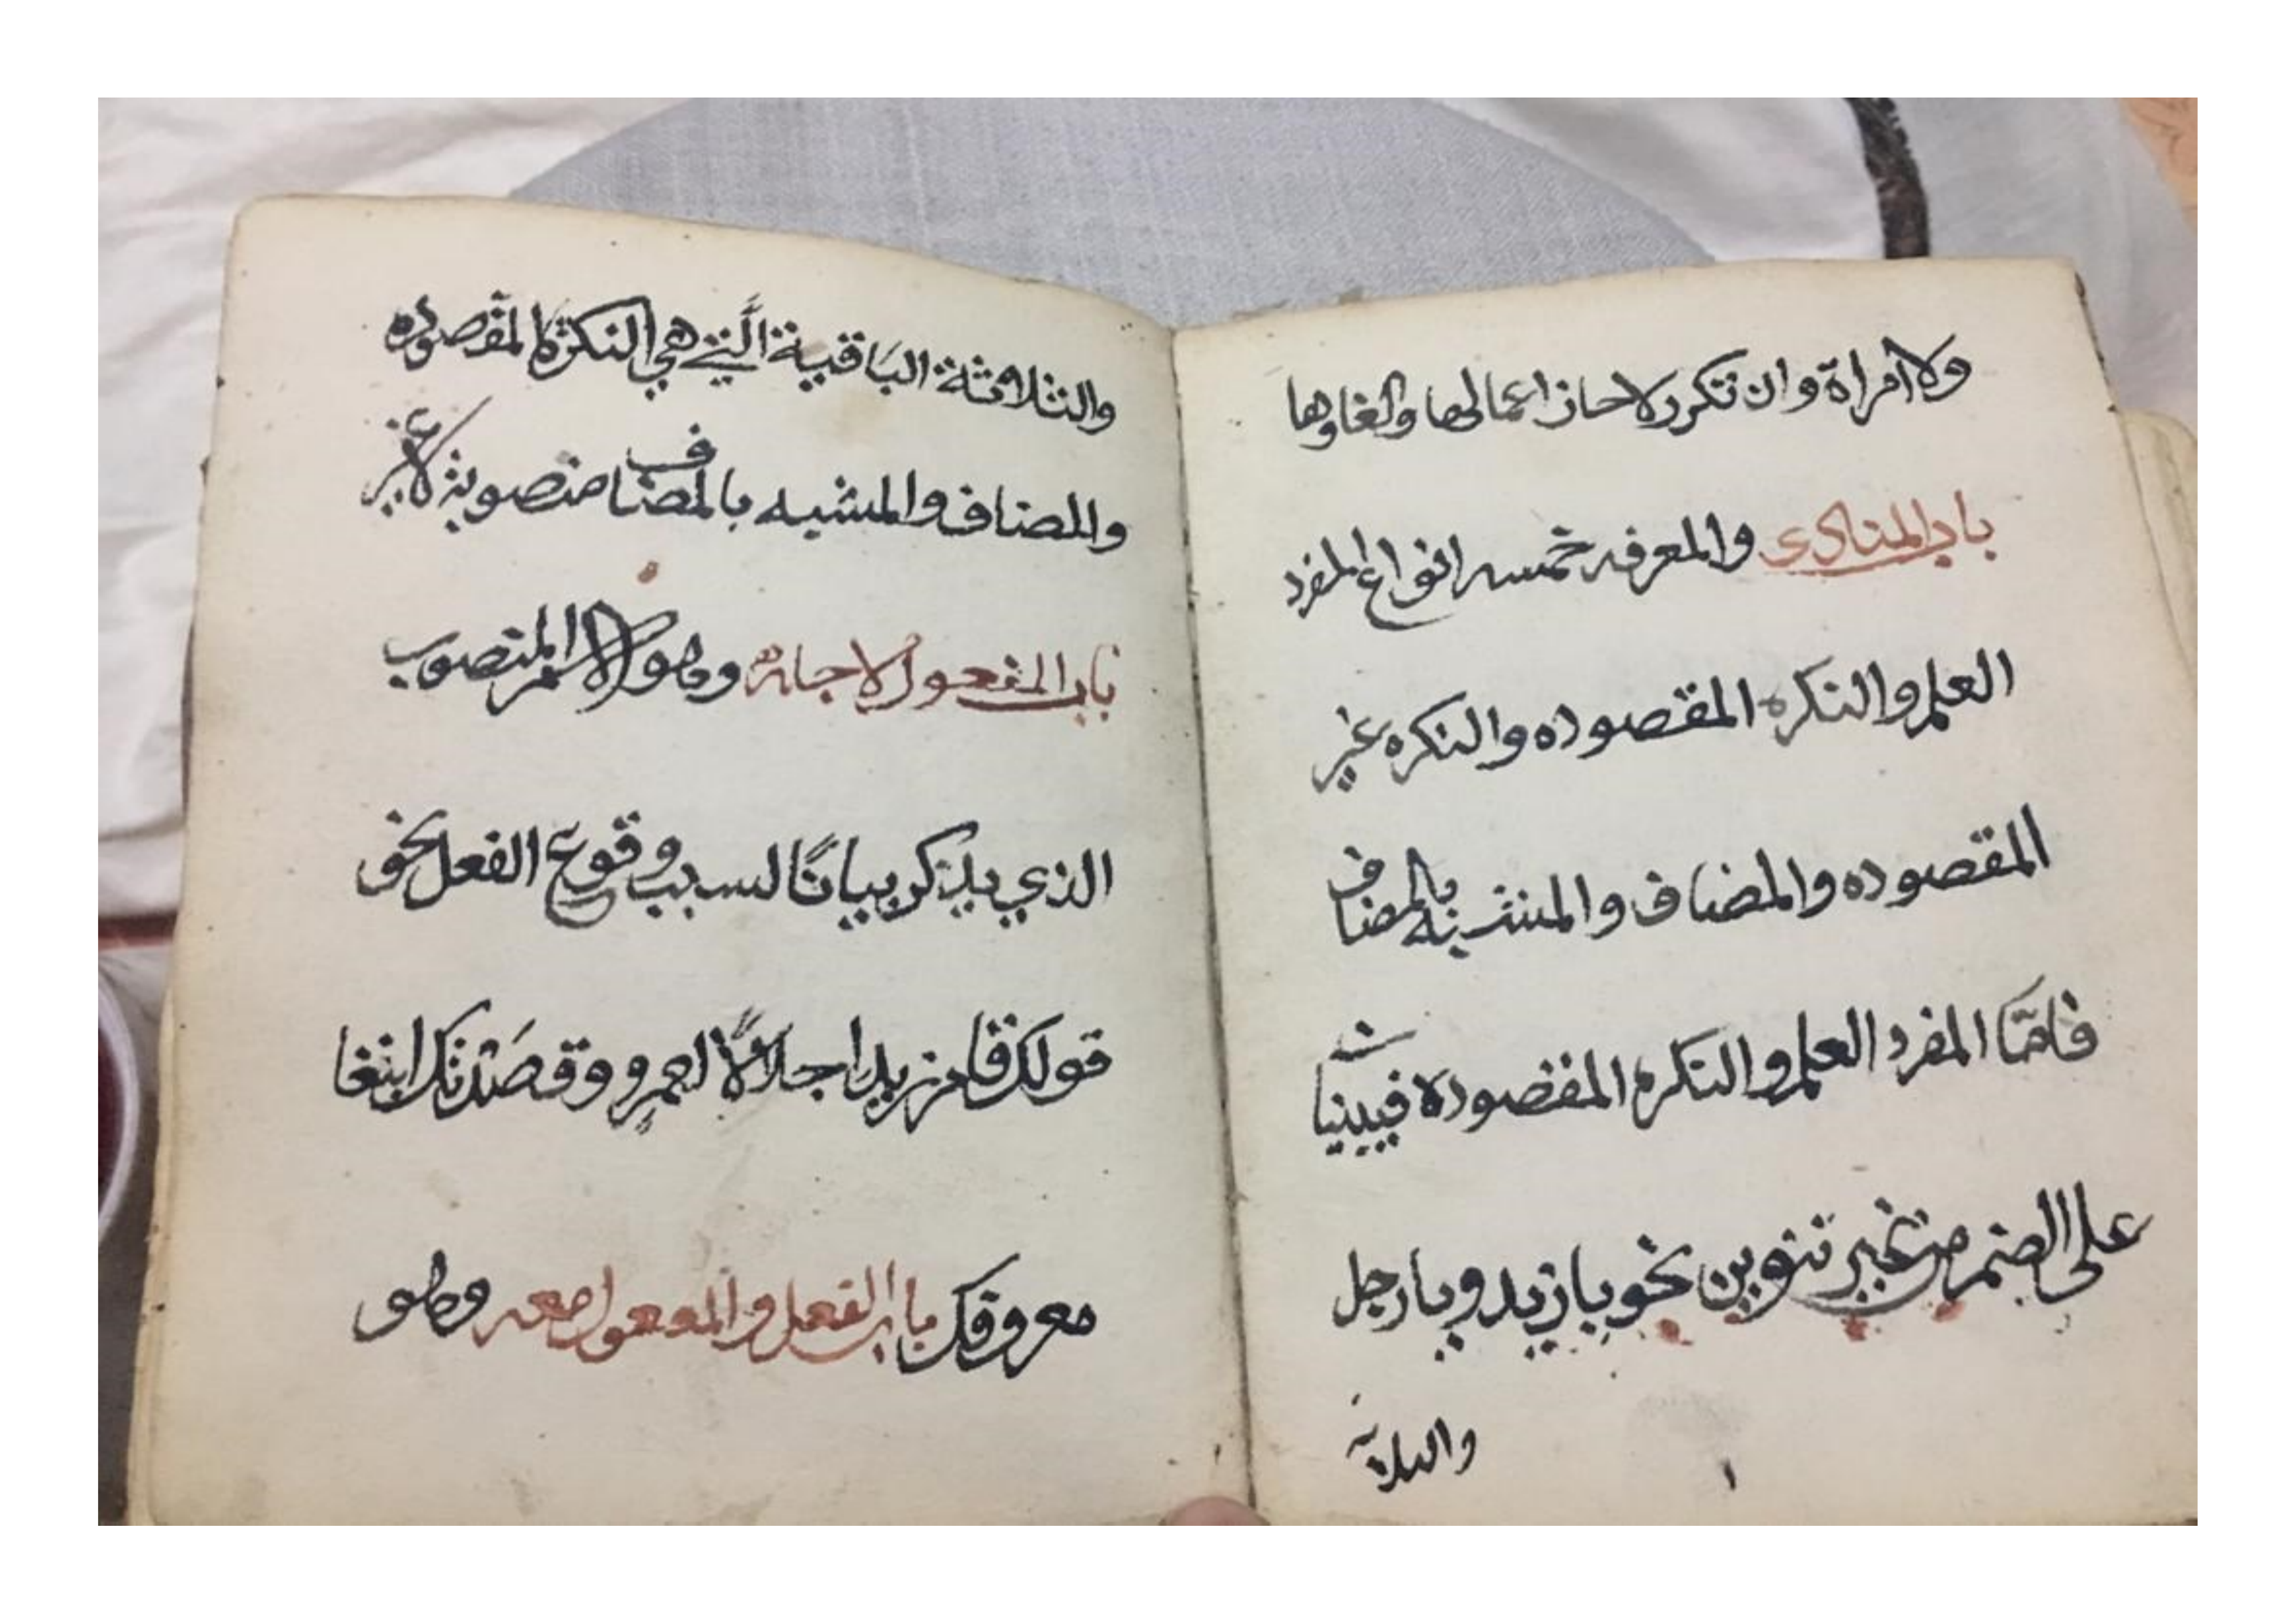 ولا امراة وان تكرر لاحاز اعمالها والغاوها
باب المنادى والمعرفه خمسه انواع المفرد
العلم والنكره المقصوده والنكره غير
المقصوده والمضاف والمشبه بالمضاف
فامّا المفرد العلم والنكره المقصوده فيبنيا
ن
على الضم من غير تنوين نحو يا زيد ويا رجل
والثلاثة
والثلاثة الباقية الَّتي هي النكرة المقصوده
والمضاف والمشبه بالمضاف منصوبة لا غير
باب المفعول لاجله وهو الاسم المنصوب
الذي يذكر بيانًا لسبب وقوع الفعل نحو
قولك قام زيد اجلالًا لعمرو وقصَدتك ابتغا
معروفك باب الفعل والمفعول معه وهو